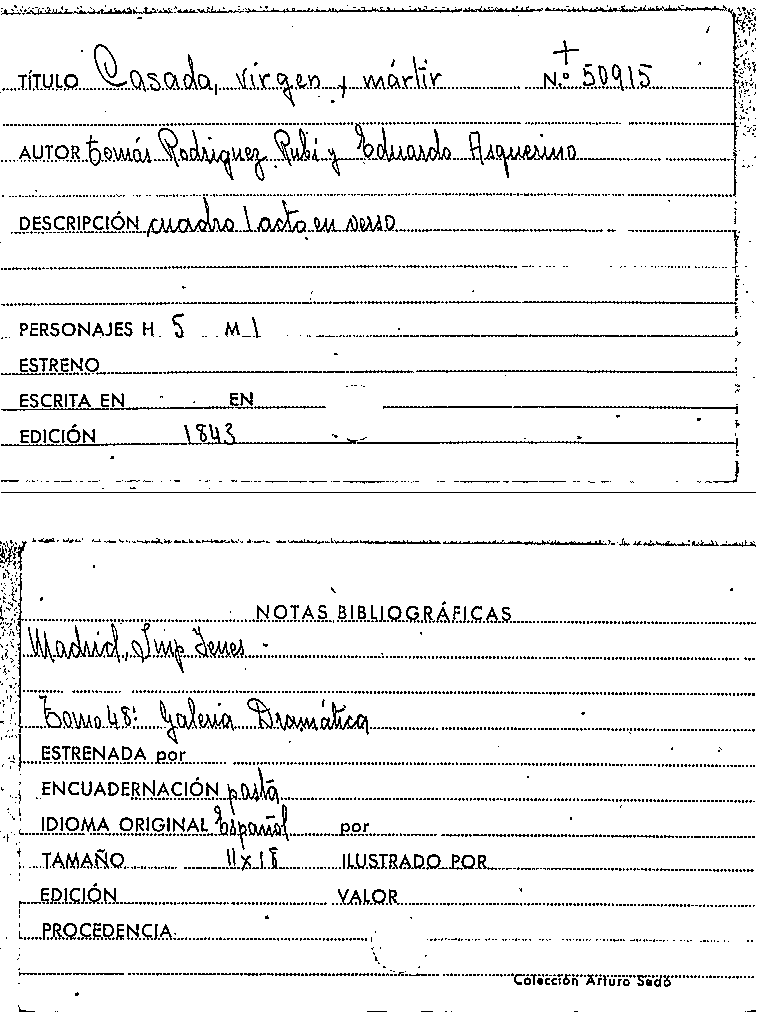 TÍTULO Casada, virgen y mártir N.º 50915
AUTOR Tomás Rodriguez Rubí y Eduardo Asquerino
DESCRIPCIÓN cuadro 1 acto en verso
PERSONAJES H 5 M 1
ESTRENO
ESCRITA EN EN
EDICIÓN 1843
NOTAS BIBLIOGRÁFICAS
Madrid, Imp Yenes
Tomo 48: Galeria Dramática
ESTRENADA por
ENCUADERNACIÓN pasta
IDIOMA ORIGINAL Español por
TAMAÑO 11 x 18 ILUSTRADO POR
EDICIÓN VALOR
PROCEDENCIA
Colección Arturo Sedó